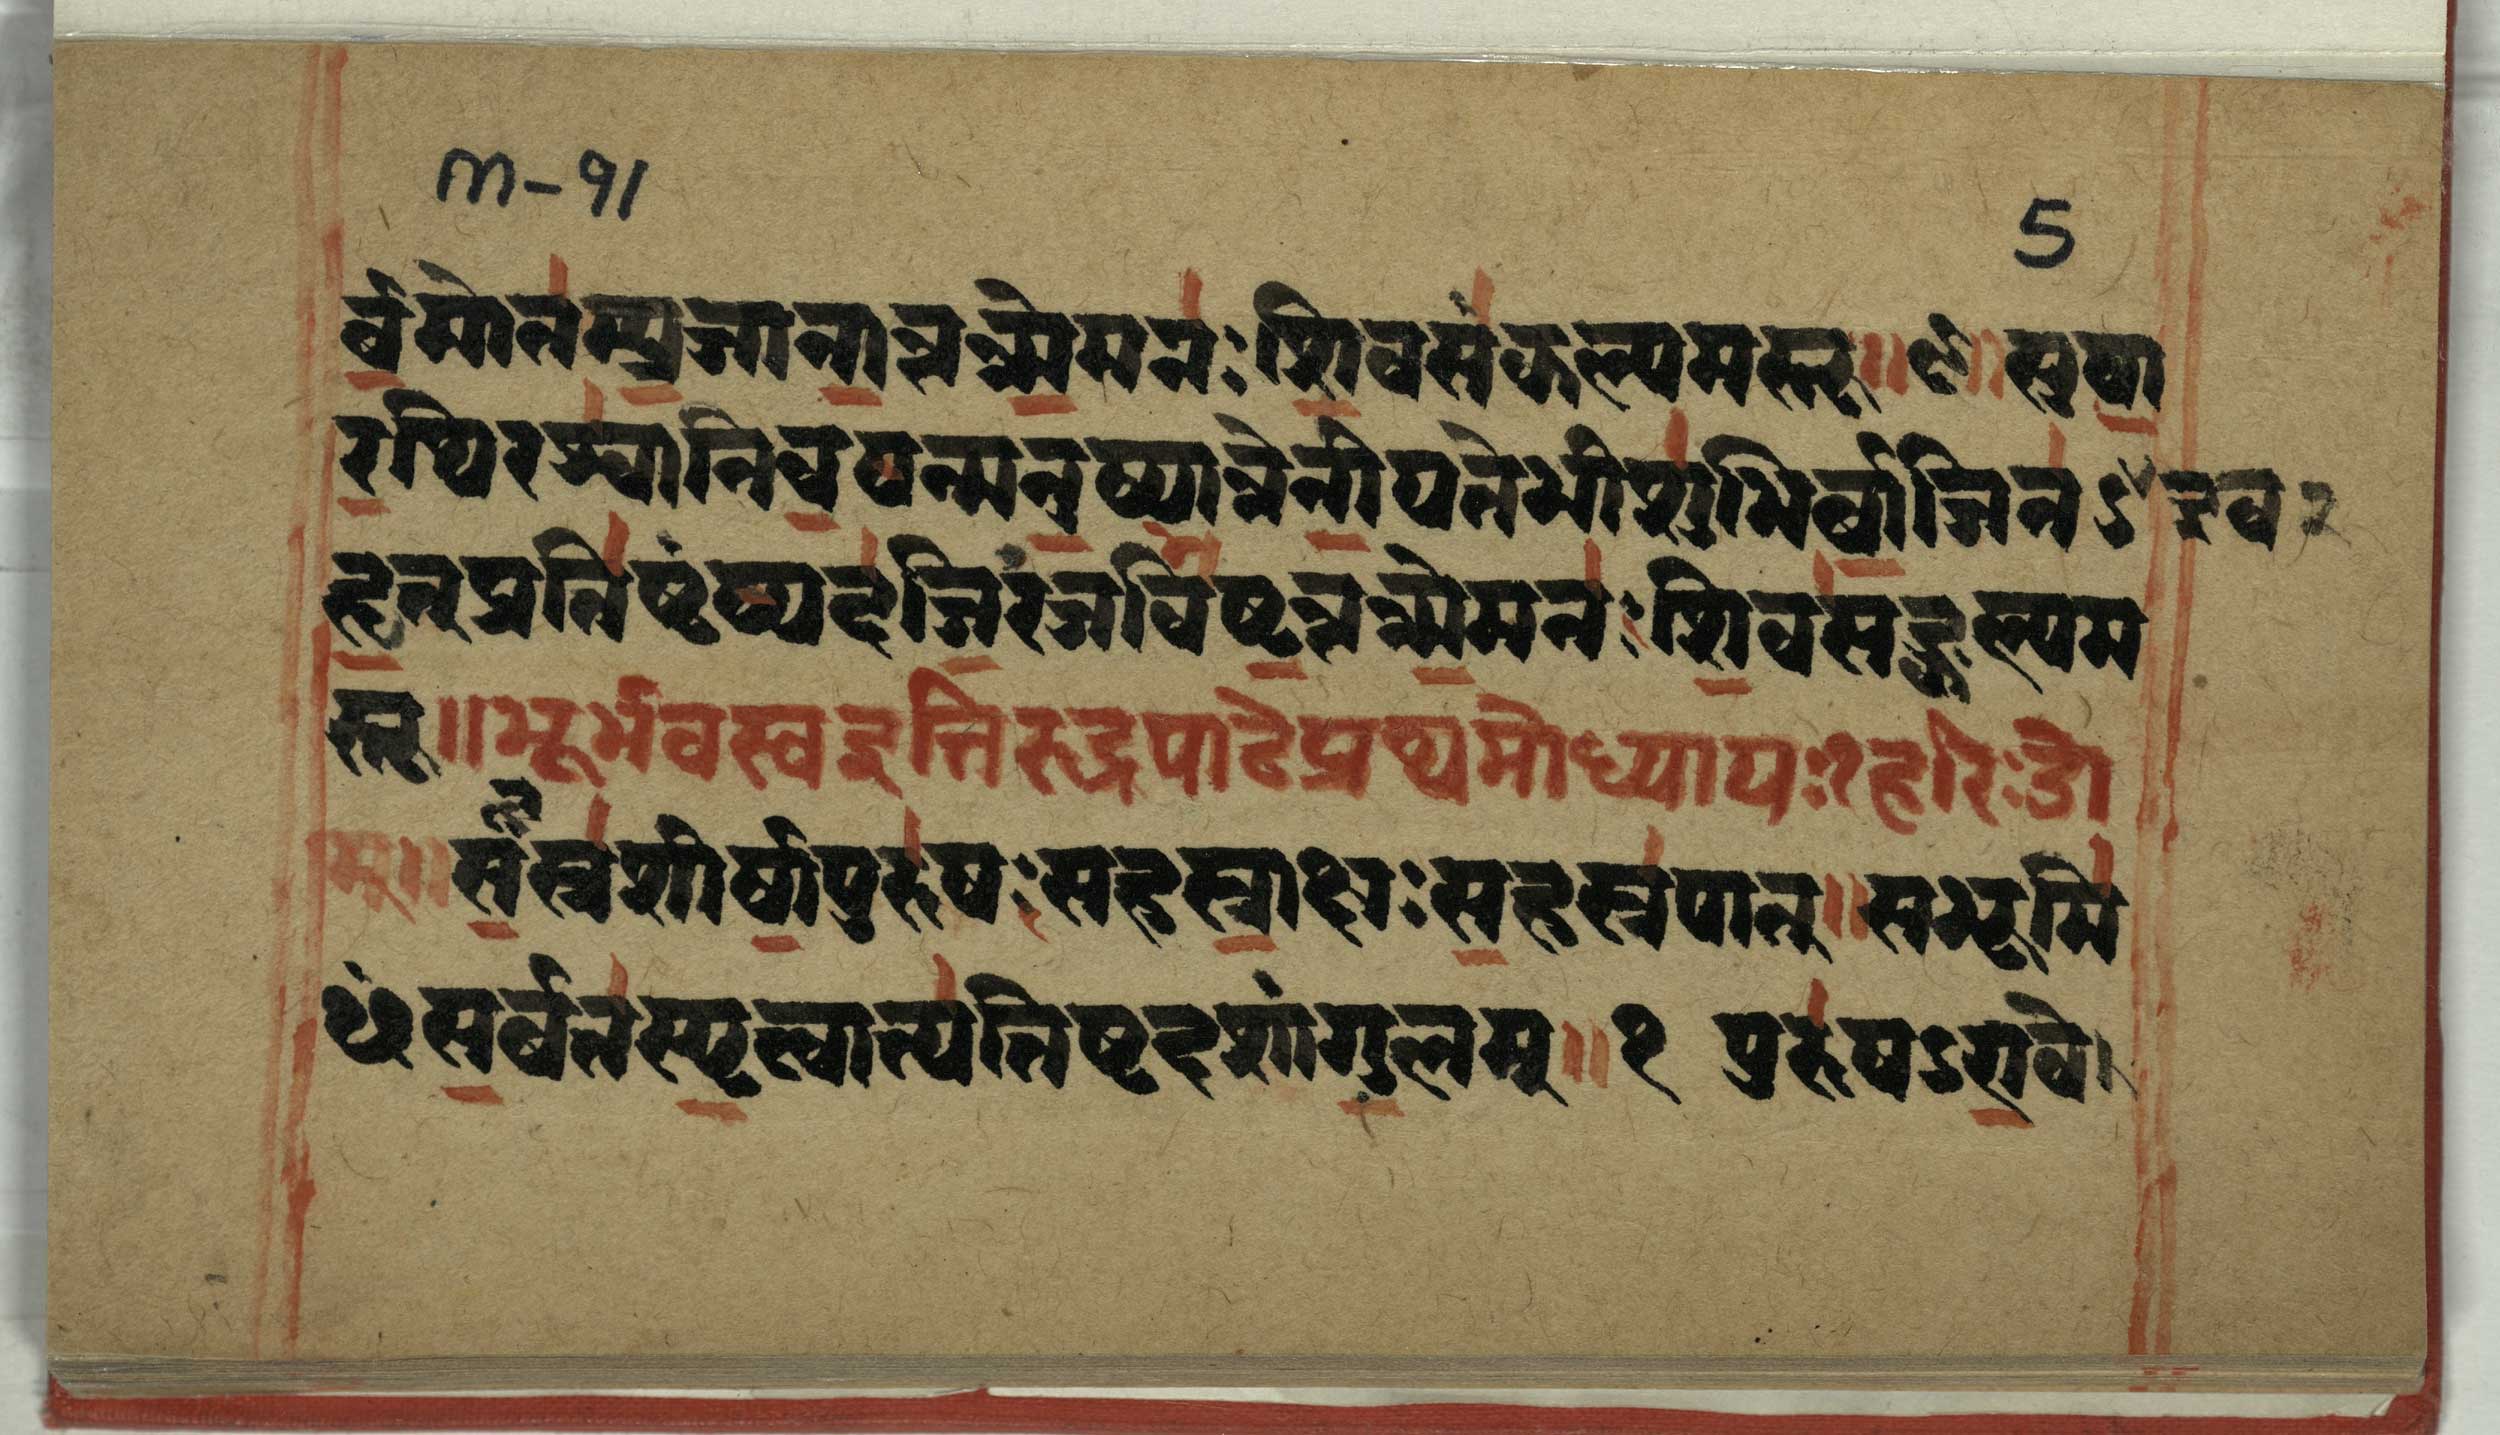 m-91
5
र्वमोतम्प्रजानान्तन्मेमनः शिवसंकल्पमस्तु ॥ ९ ॥ सुषा
रथिरश्वानिवषन्मनुष्यान्नेनीयतेभीशुभिर्वाजिनऽइव २
हृत्प्रतिष्ठंष्यदजिरंजविष्ठन्तन्मेमनः शिवसङ्कल्पम
स्तु ॥ भूर्भवस्वइत्तिरुद्रपाठेप्रथमोध्यायः १ हरिः ओ
म् ॥ सहस्त्रशीर्षापुरुषः सहस्त्राक्षः सहस्त्रपात् ॥ सभूमि
ꣳ सर्बतस्पृत्वात्यतिष्ठदशांगुलम् ॥ १ पुरुषऽएवे।